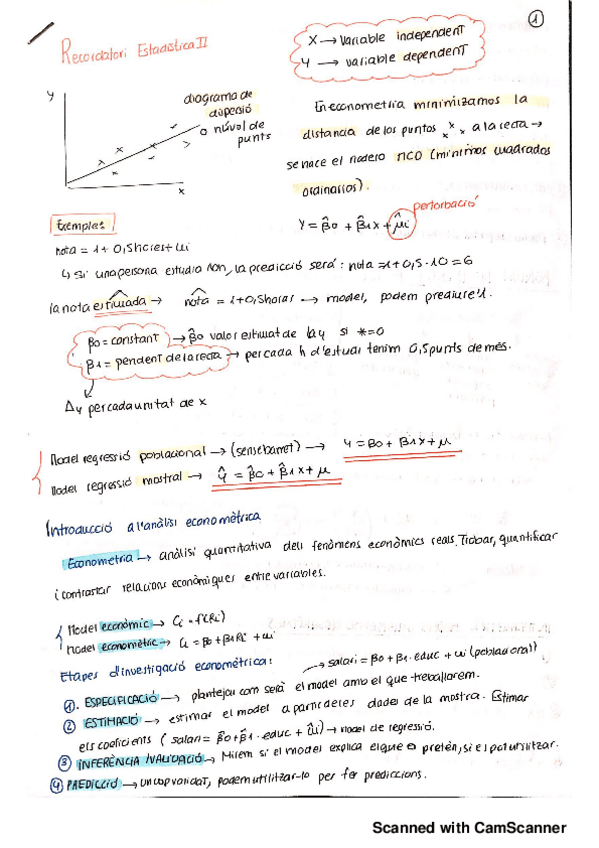 1
Recordatori Estadística II
X → Variable independent
Y → variable dependent
y
diagrama de
dispesió
o núvol de
punts
x
En econometria minimizamos la
distancia de los puntos x x x a la recta →
se hace el modelo MCO (mínimos cuadrados
ordinarios).
pertorbació
Y = β̂0 + β̂1x + μ̂i
Exemple:
nota = 1 + 0,5hores + ui
↳ si una persona estudia 10h, la predicció serà: nota = 1 + 0,5 · 10 = 6
la nota estimada → notâ = 1 + 0,5horas → model, podem predir el.
β0 = constant → β̂0 valor estimat de la y si x = 0
β1 = pendent de la recta → per cada h d'estudi tenim 0,5 punts de més.
Δy per cada unitat de x
Model regressió poblacional → (sense barret) → Y = β0 + β1x + μ
Model regressió mostral → Ŷ = β̂0 + β̂1x + μ
Introducció a l'anàlisi economètrica
Econometria → anàlisi quantitativa dels fenòmens econòmics reals. Trobar, quantificar
i contrastar relacions econòmiques entre variables.
Model econòmic → Ci = f(Ri)
Model economètric → Ci = β0 + β1Ri + ui
Etapes d'investigació economètrica:
→ salari = β0 + β1 · educ + ui (poblacional)
1. ESPECIFICACIÓ → plantejar com serà el model amb el que treballarem.
2 ESTIMACIÓ → estimar el model a partir de les dades de la mostra. Estimar
els coeficients (salari = β̂0 + β̂1 · educ + ûi) → model de regressió.
3 INFERÈNCIA / VALIDACIÓ → Mirem si el model explica el que es pretén, si es pot utilitzar.
4 PREDICCIÓ → un cop validat, podem utilitzar-lo per fer prediccions.
Scanned with CamScanner